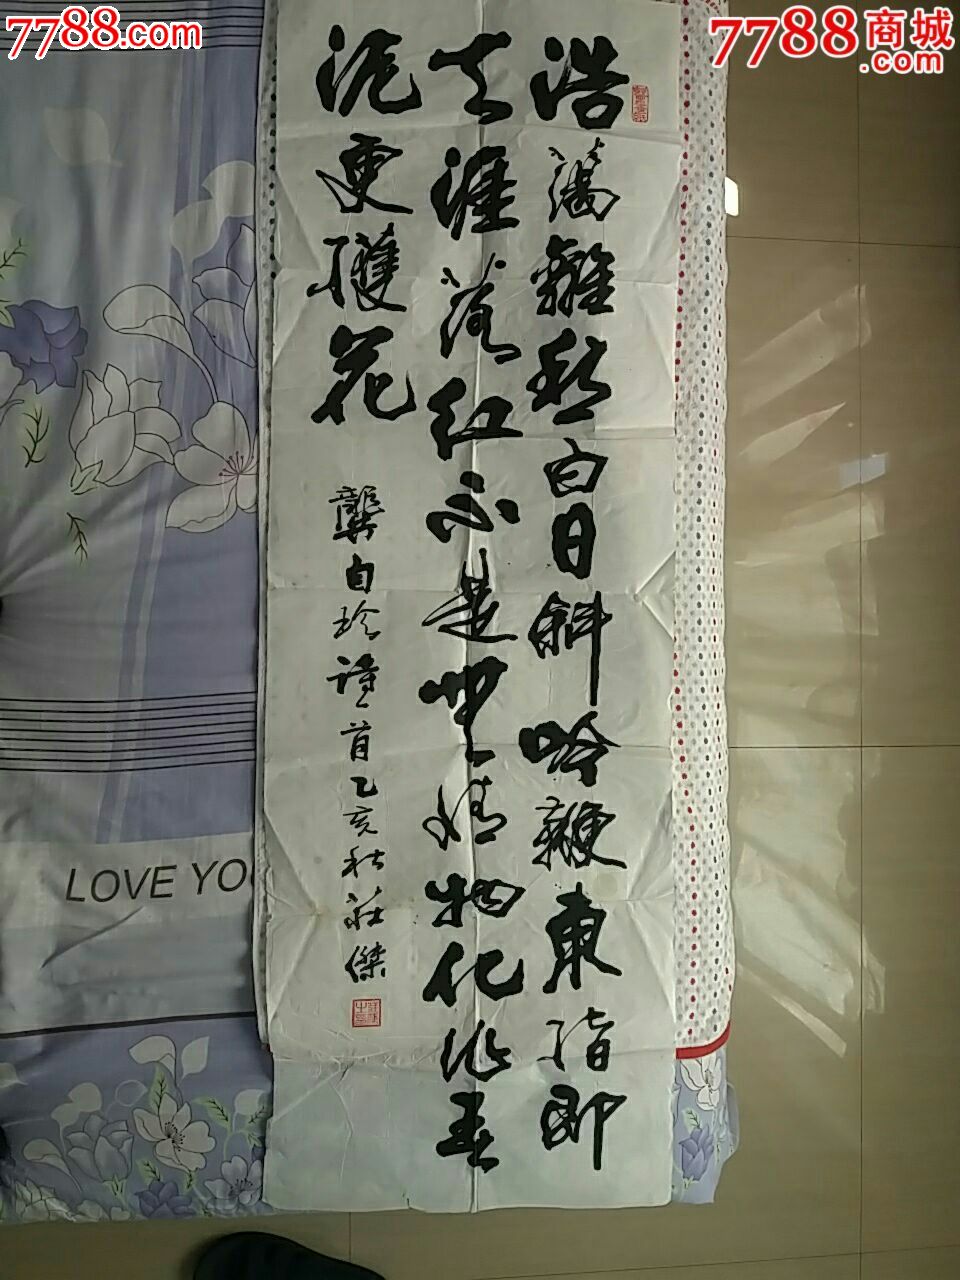 7788.com
7788商城
.com
浩蕩離愁白日斜吟鞭東指即
天涯落紅不是無情物化作春
泥更護花
龔自珍詩一首乙亥秋莊傑
LOVE YO